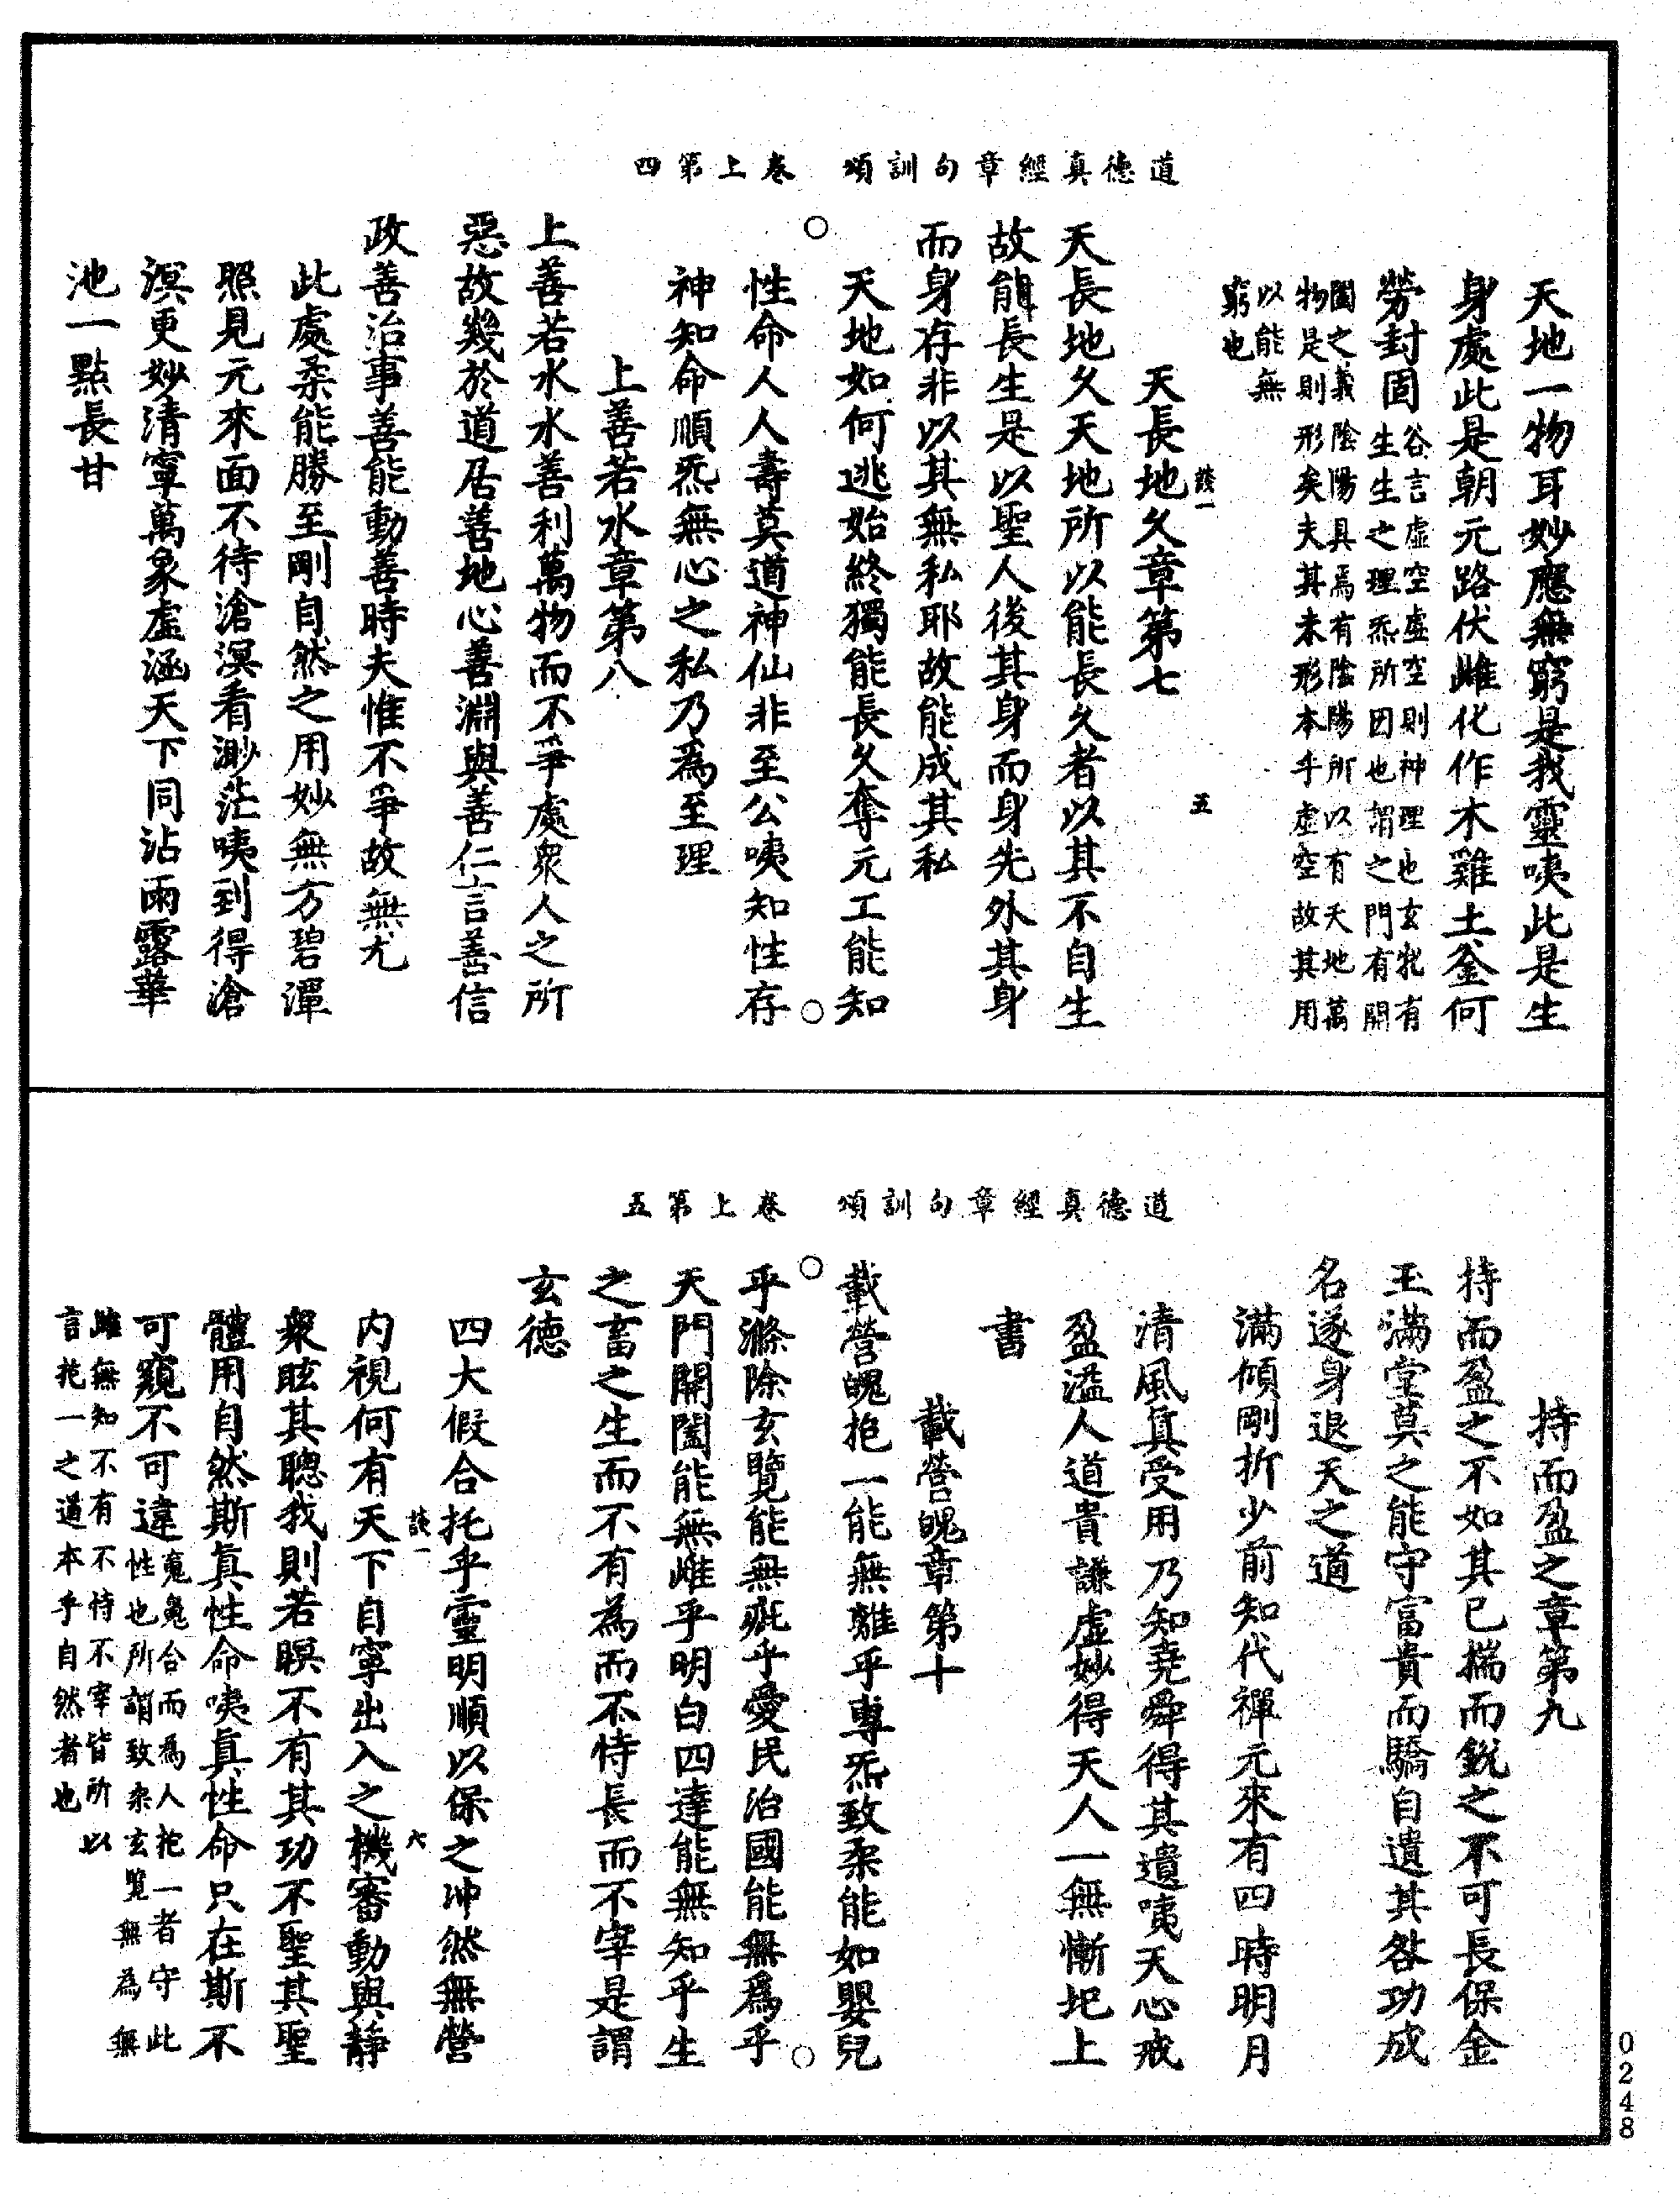 道德真經章句訓頌　卷上第四
天地一物耳妙應無窮是我靈咦此是生
身處此是朝元路伏雌化作木雞土釜何
勞封固谷言虛空虛空則神理也玄牝有
生生之理炁所因也謂之門有開
闔之義陰陽具焉有陰陽所以有天地萬
物是則形矣夫其未形本乎虛空故其用
以能無
窮也
談一　五
天長地久章第七
天長地久天地所以能長久者以其不自生
故能長生是以聖人後其身而身先外其身
而身存非以其無私耶故能成其私
天地如何逃始終獨能長久奪元工能知
性命人人壽莫道神仙非至公咦知性存
神知命順炁無心之私乃爲至理
上善若水章第八
上善若水水善利萬物而不爭處衆人之所
惡故幾於道居善地心善淵與善仁言善信
政善治事善能動善時夫惟不爭故無尤
此處柔能勝至剛自然之用妙無方碧潭
照見元來面不待滄溟看渺茫咦到得滄
溟更妙清寧萬象虛涵天下同沾雨露華
池一點長甘
道德真經章句訓頌　卷上第五
持而盈之章第九
持而盈之不如其已揣而銳之不可長保金
玉滿堂莫之能守富貴而驕自遺其咎功成
名遂身退天之道
滿傾剛折少前知代禪元來有四時明月
清風真受用乃知堯舜得其遺咦天心戒
盈溢人道貴謙虛妙得天人一無慚圯上
書
載營魄章第十
載營魄抱一能無離乎專炁致柔能如嬰兒
乎滌除玄覽能無疵乎愛民治國能無爲乎
天門開闔能無雌乎明白四達能無知乎生
之畜之生而不有為而不恃長而不宰是謂
玄德
四大假合托乎靈明順以保之冲然無營
談一　六
内視何有天下自寧出入之機審動與静
衆眩其聰我則若瞑不有其功不聖其聖
體用自然斯真性命咦真性命只在斯不
可窺不可違魂魄合而為人抱一者守此
性也所謂致柔玄覽無為無
雌無知不有不恃不宰皆所以
言抱一之道本乎自然者也
0248